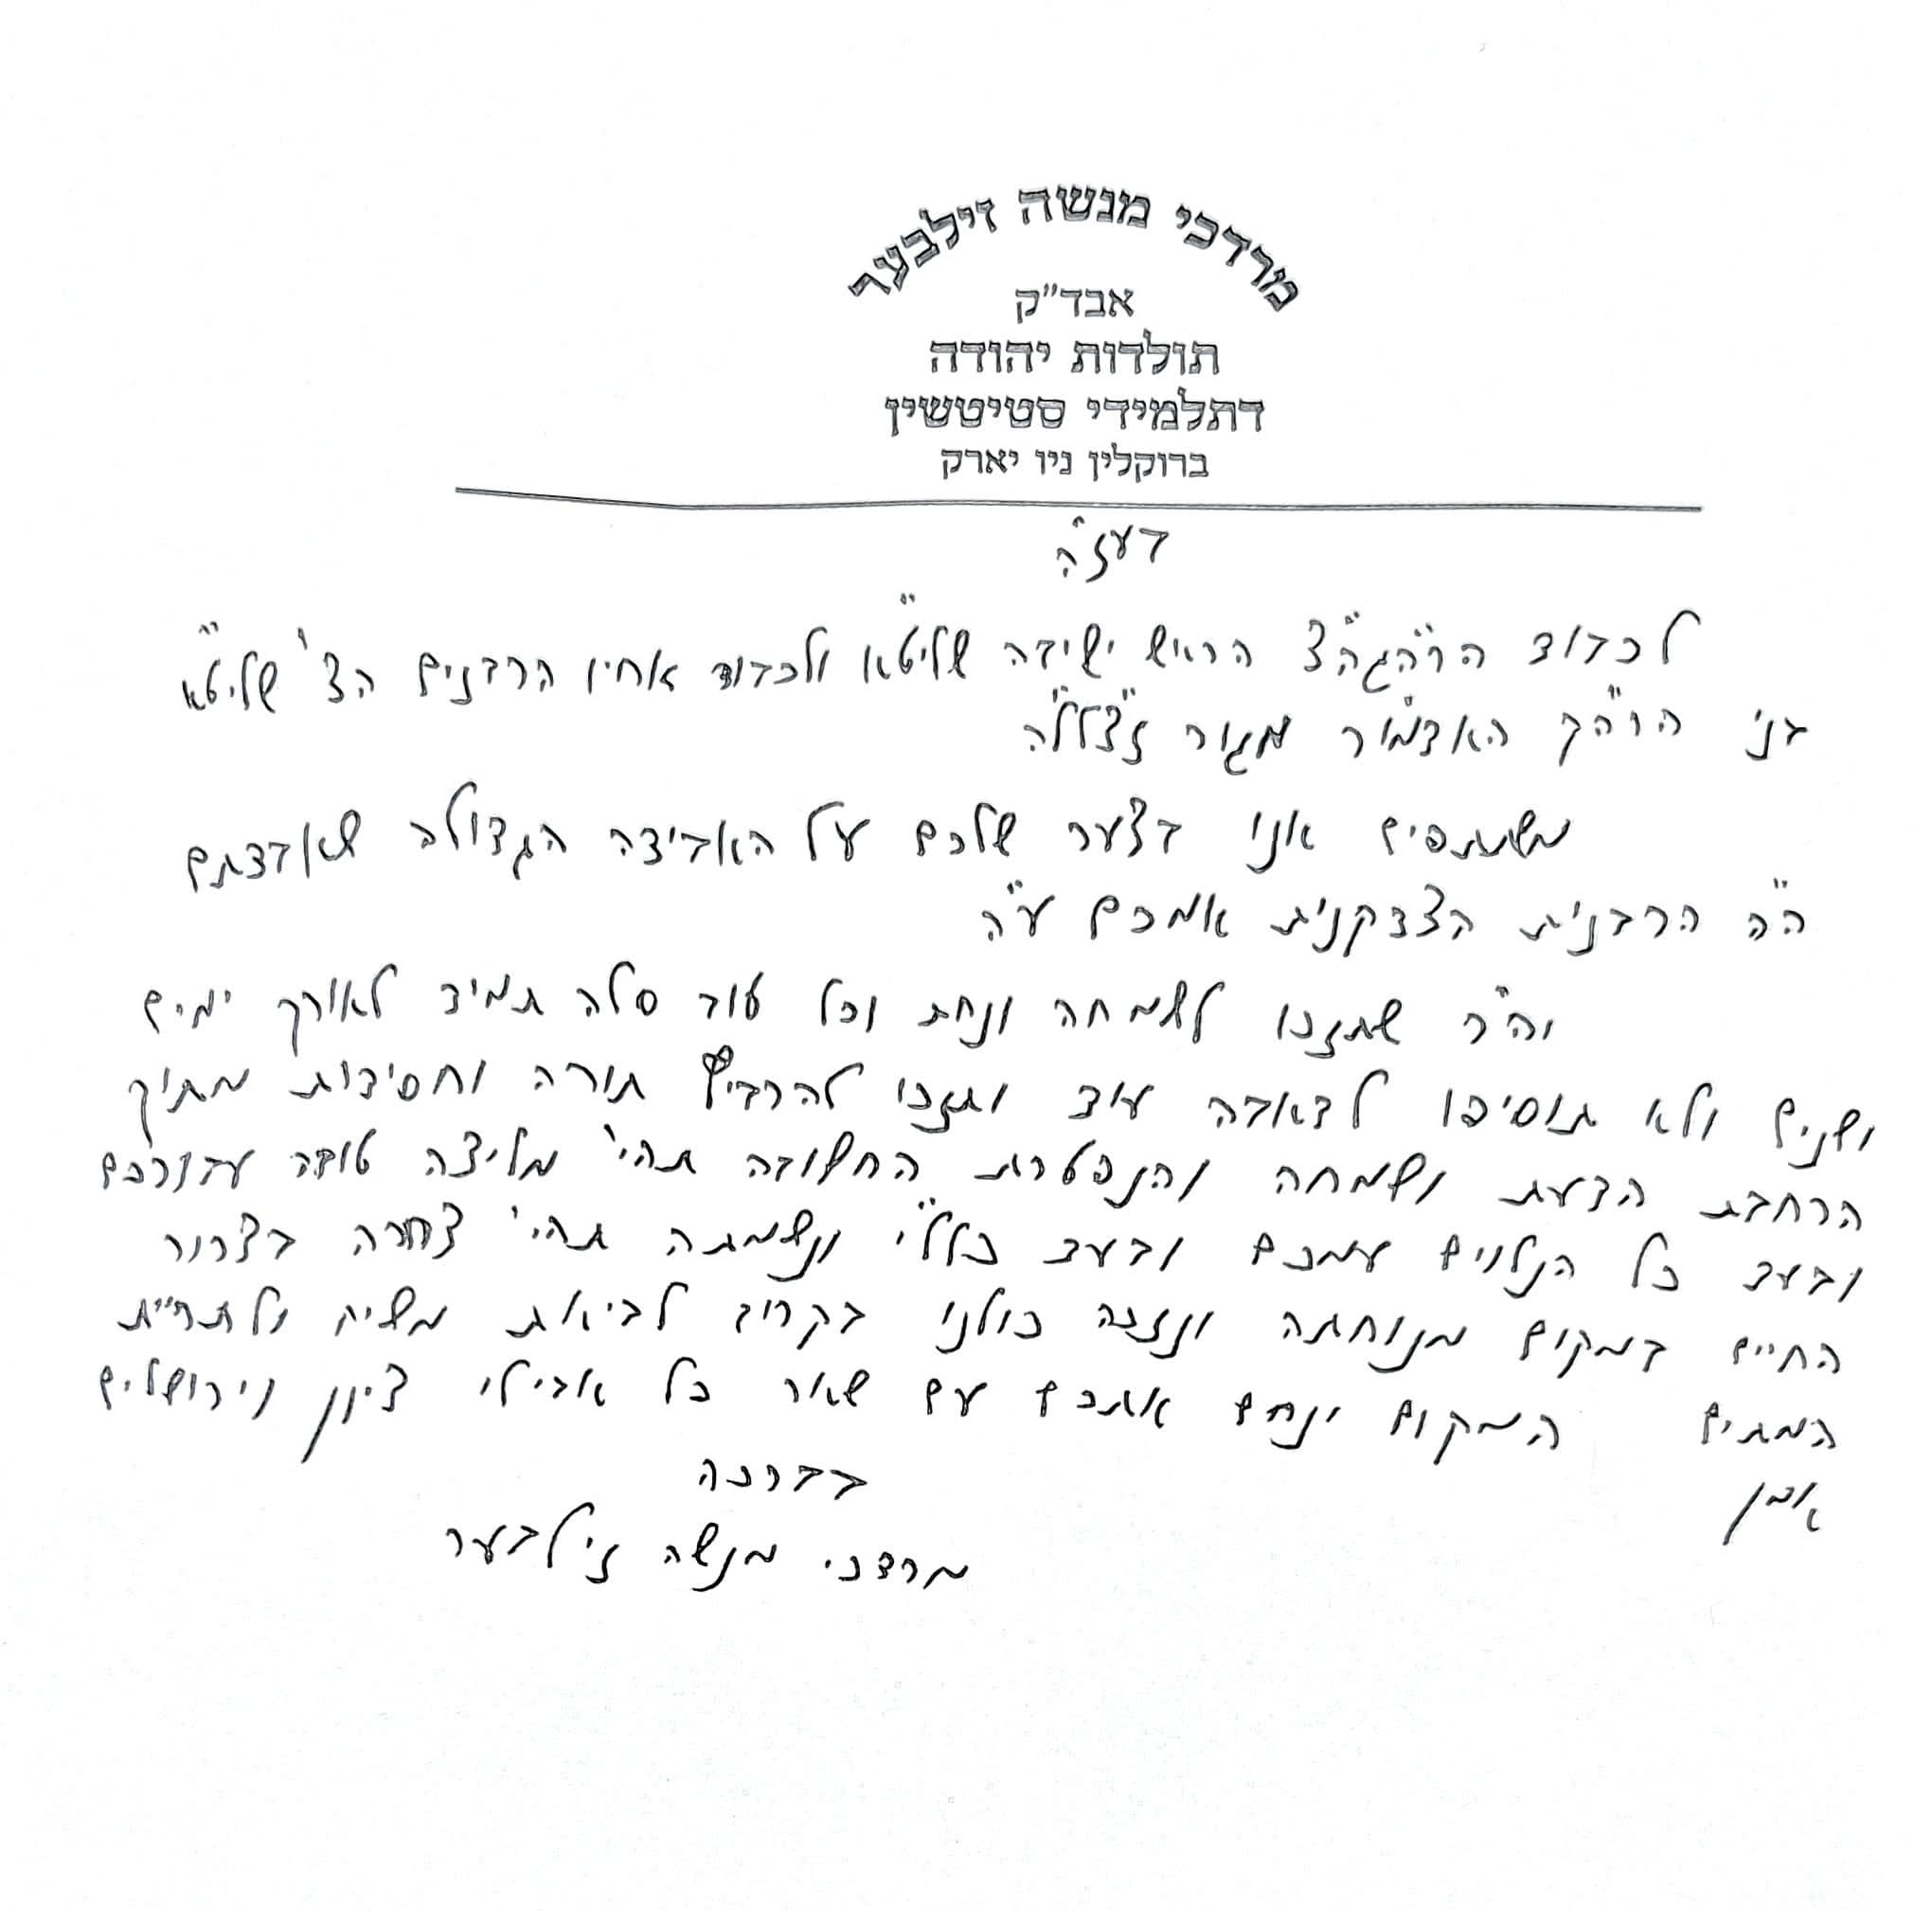 מרדכי מנשה זילבער
אבד"ק
תולדות יהודה
דתלמידי סטיטשין
ברוקלין ניו יארק
בעז"ה
לכבוד הרה"גה"צ הראש ישיבה שליט"א ולכבוד אחיו הרבנים הצ' שליט"א
בני הרה"ק האדמו"ר מגור זצלל"ה
משתתפים אני בצער שלכם על האבידה הגדולה שאבדתם
ה"ה הרבנית הצדקנית אמכם ע"ה
והי"ר שתזכו לשמחה ונחת וכל טוב סלה תמיד לאורך ימים
ושנים ולא תוסיפו לדאבה עוד ותזכו להרביץ תורה וחסידות מתוך
הרחבת הדעת ושמחה והנפטרת החשובה תהי' מליצה טובה עבורכם
ובעד כל הנלוים עמכם ובעד כלל"י ונשמתה תהי' צרורה בצרור
החיים במקום מנוחתה ונזכה כולנו בקרוב לביאת משיח ולתחיית
המתים המקום ינחם אתכם עם שאר כל אבילי ציון וירושלים
אמן
בברכה
מרדכי מנשה זילבער